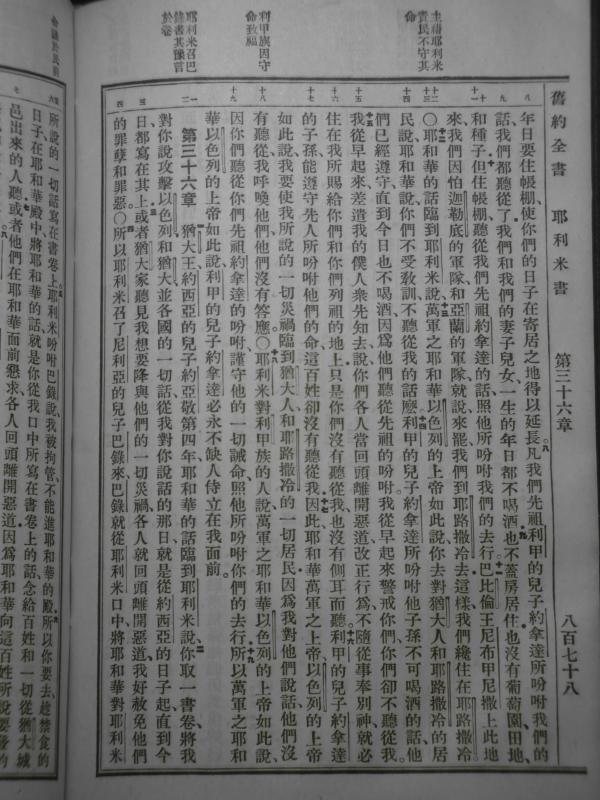 舊約全書 耶利米書 第三十六章 八百七十八
主藉耶利米
責民不守其
命
利甲族因守
命致福
耶利米召巴
錄書其豫言
於卷
年日要住帳棚使你們的日子在寄居之地得以延長凡我們先祖利甲的兒子約拿達所吩咐我們的
話我們都聽從了我們和我們的妻子兒女一生的年日都不喝酒也不蓋房居住也沒有葡萄園田地
和種子但住帳棚聽從我們先祖約拿達的話照他所吩咐我們的去行巴比倫王尼布甲尼撒上此地
來我們因怕迦勒底的軍隊和亞蘭的軍隊就說來罷我們到耶路撒冷去這樣我們纔住在耶路撒冷
〇耶和華的話臨到耶利米說萬軍之耶和華以色列的上帝如此說你去對猶大人和耶路撒冷的居
民說耶和華說你們不受教訓不聽從我的話麽利甲的兒子約拿達所吩咐他子孫不可喝酒的話他
們已經遵守直到今日也不喝酒因爲他們聽從先祖的吩咐我從早起來警戒你們你們卻不聽從我
我從早起來差遣我的僕人衆先知去說你們各人當回頭離開惡道改正行爲不隨從事奉別神就必
住在我所賜給你們和你們列祖的地上只是你們沒有聽從我也沒有側耳而聽利甲的兒子約拿達
的子孫能遵守先人所吩咐他們的命這百姓卻沒有聽從我因此耶和華萬軍之上帝以色列的上帝
如此說我要使我所說的一切災禍臨到猶大人和耶路撒冷的一切居民因爲我對他們說話他們沒
有聽從我呼喚他們他們沒有答應〇耶利米對利甲族的人說萬軍之耶和華以色列的上帝如此說
因你們聽從你們先祖約拿達的吩咐謹守他的一切誡命照他所吩咐你們的去行所以萬軍之耶和
華以色列的上帝如此說利甲的兒子約拿達必永不缺人侍立在我面前
第三十六章 猶大王約西亞的兒子約亞敬第四年耶和華的話臨到耶利米說你取一書卷將我
對你說攻擊以色列和猶大並各國的一切話從我對你說話的那日就是從約西亞的日子起直到今
日都寫在其上或者猶大家聽見我想要降與他們的一切災禍各人就回頭離開惡道我好赦免他們
的罪孽和罪惡〇所以耶利米召了尼利亞的兒子巴錄來巴錄就從耶利米口中將耶和華對耶利米
所說的一切話寫在書卷上耶利米吩咐巴錄說我被拘管不能進耶和華的殿所以你要去趁禁食的
日子在耶和華殿中將耶和華的話就是你從我口中所寫在書卷上的話念給百姓和一切從猶大城
邑出來的人聽或者他們在耶和華面前懇求各人回頭離開惡道因爲耶和華向這百姓所說要發的